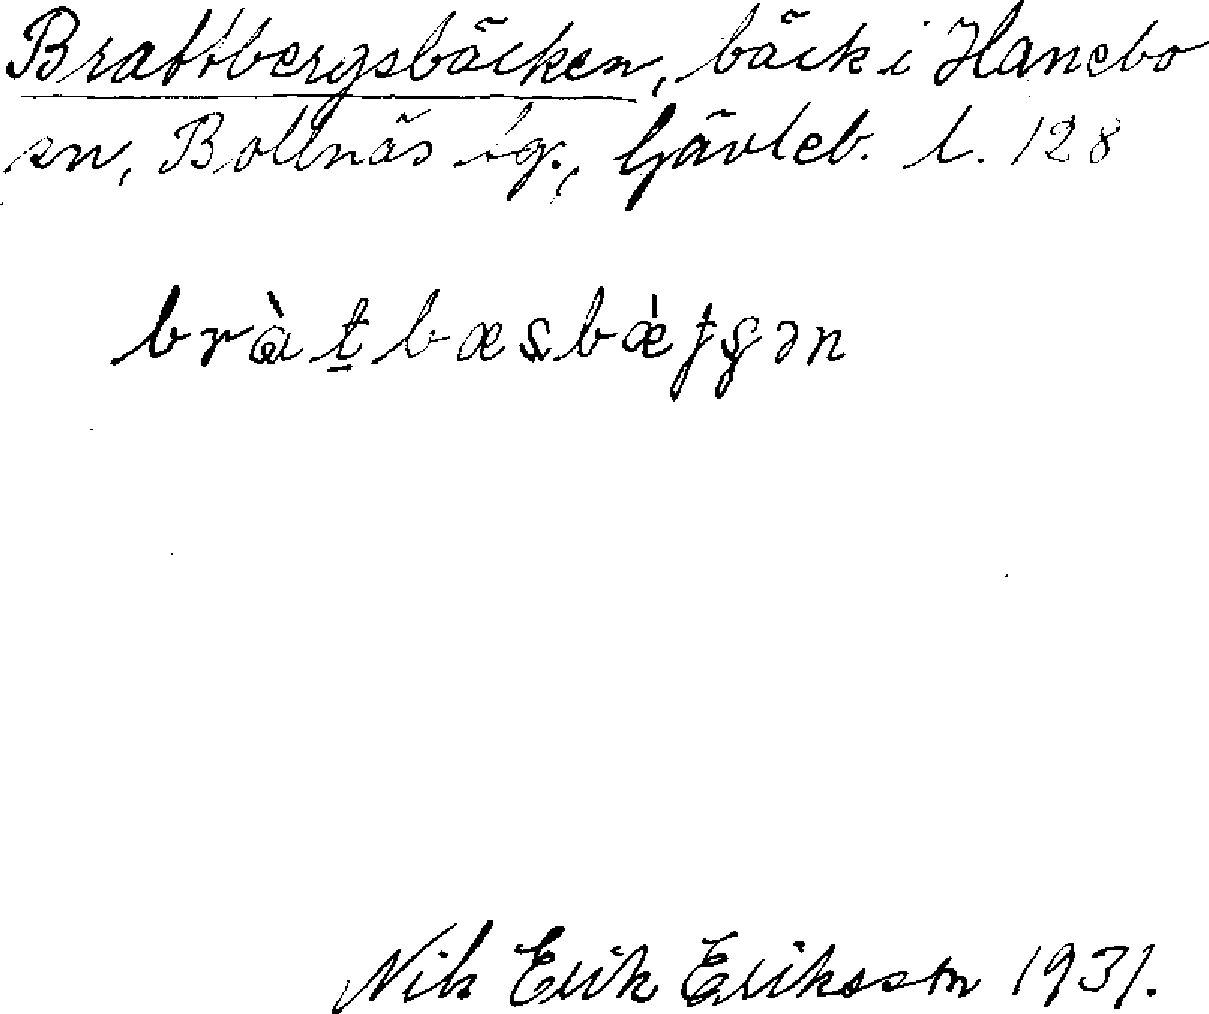 Brattbergsbäcken, bäck i Hanebo
sn, Bollnäs tg., Gävleb. l. 128
Nils Erik Eriksson 1931.